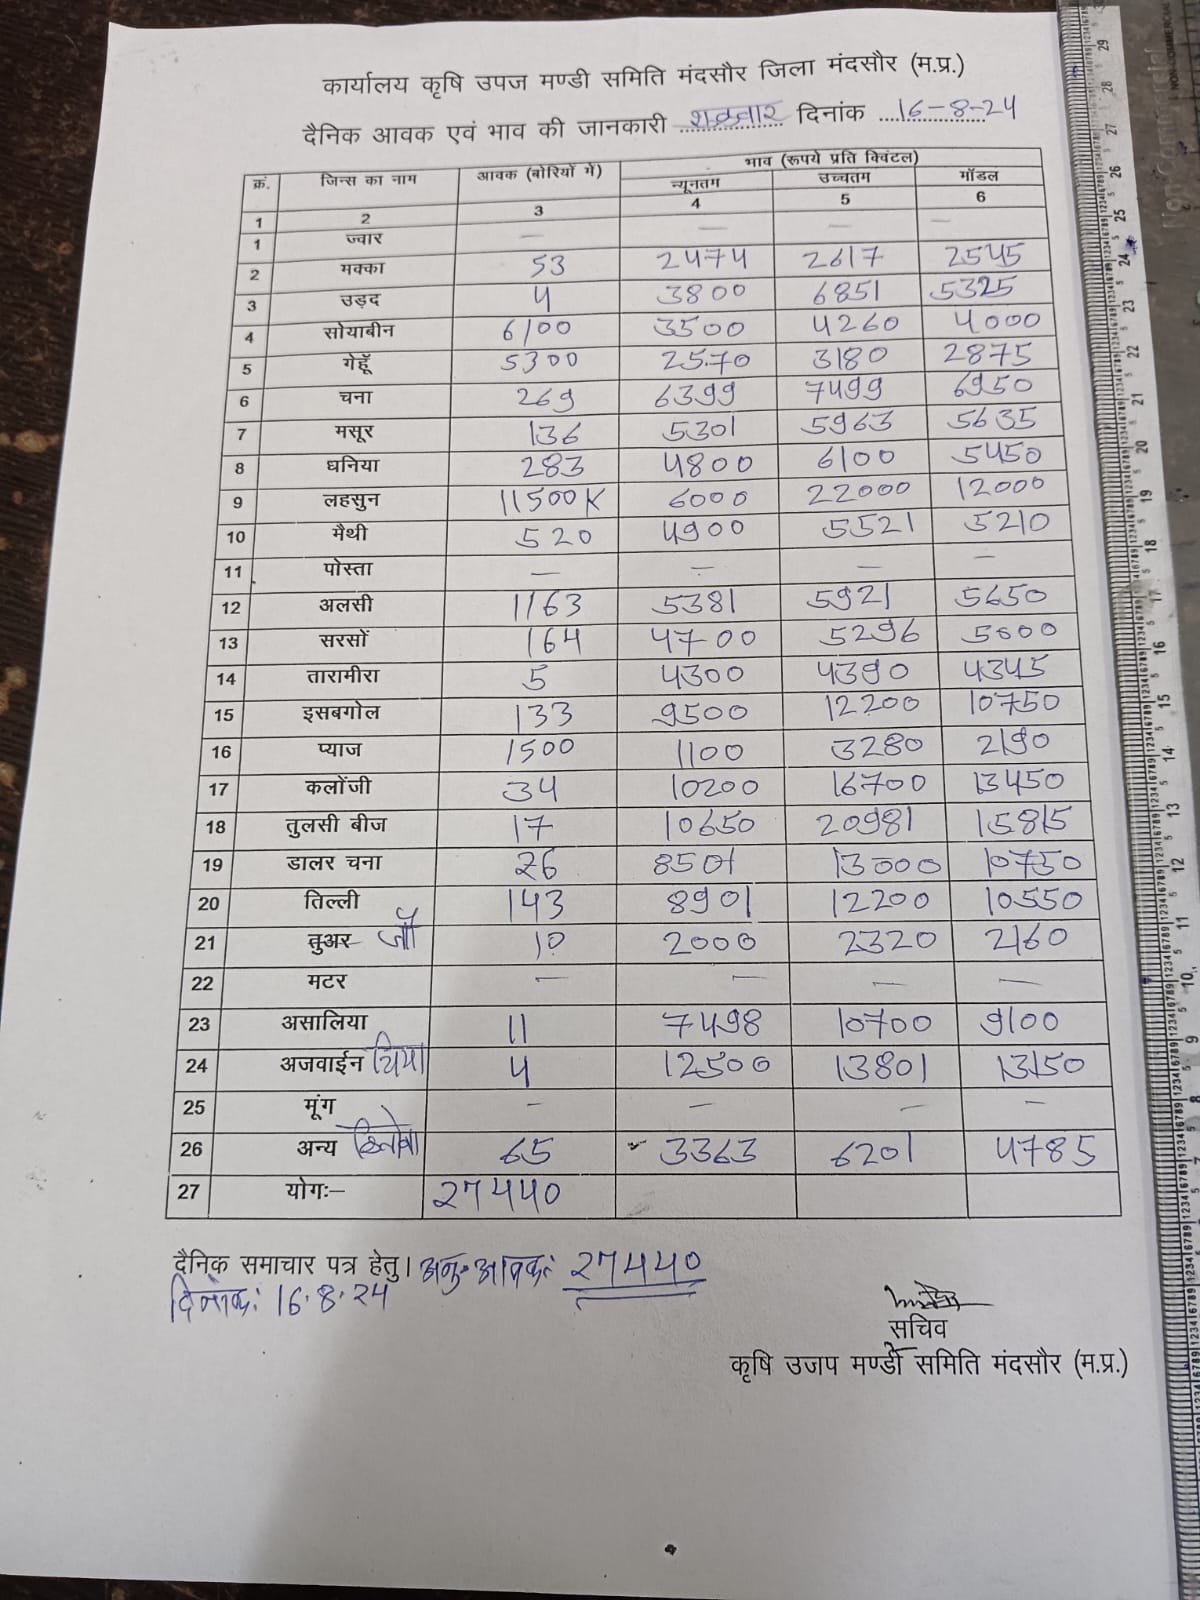 कार्यालय कृषि उपज मण्डी समिति मंदसौर जिला मंदसौर (म.प्र.)
दैनिक आवक एवं भाव की जानकारी शुक्रवार दिनांक 16-8-24
क्रं. जिन्स का नाम आवक (बोरियों में) भाव (रूपये प्रति क्विंटल)
न्यूनतम उच्चतम मॉडल
1 2 3 4 5 6
1 ज्वार — — — —
2 मक्का 53 2474 2617 2545
3 उड़द 4 3800 6851 5325
4 सोयाबीन 6100 3500 4260 4000
5 गेहूँ 5300 2570 3180 2875
6 चना 269 6399 7499 6950
7 मसूर 136 5301 5963 5635
8 धनिया 283 4800 6100 5450
9 लहसुन 11500K 6000 22000 12000
10 मैथी 520 4900 5521 5210
11 पोस्ता — — — —
12 अलसी 1163 5381 5921 5650
13 सरसों 164 4700 5296 5000
14 तारामीरा 5 4300 4390 4345
15 इसबगोल 133 9500 12200 10750
16 प्याज 1500 1100 3280 2190
17 कलोंजी 34 10200 16700 13450
18 तुलसी बीज 17 10650 20981 15815
19 डालर चना 26 8501 13000 10750
20 तिल्ली 143 8901 12200 10550
21 तुअर जौ 10 2000 2320 2160
22 मटर — — — —
23 असालिया 11 7498 10700 9100
24 अजवाईन चिया 4 12500 13801 13150
25 मूंग — — — —
26 अन्य 65 3363 6201 4785
27 योगः– 27440
दैनिक समाचार पत्र हेतु। अनु. आवक: 27440
दिनांक: 16.8.24
सचिव
कृषि उजप मण्डी समिति मंदसौर (म.प्र.)